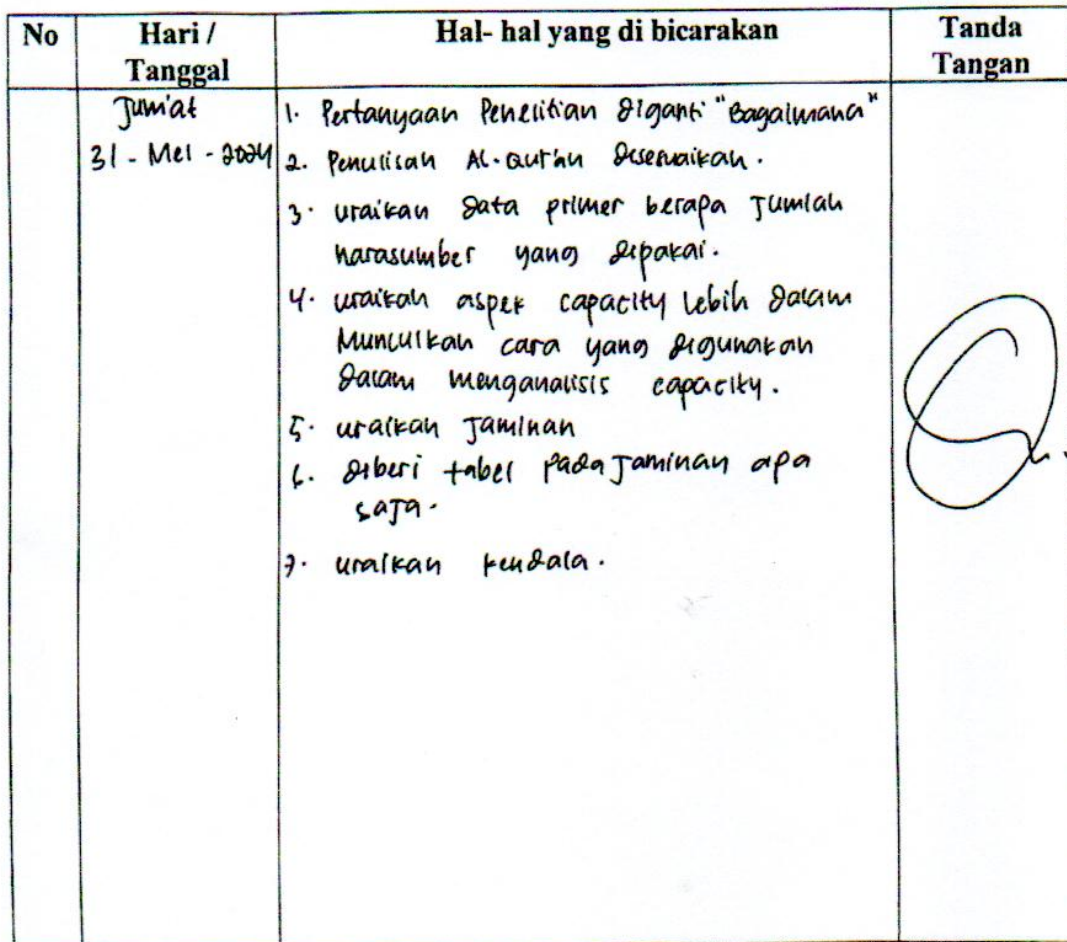 No
Hari /
Tanggal
Hal- hal yang di bicarakan
Tanda
Tangan
Jum'at
31 - Mei - 2024
1. Pertanyaan Penelitian diganti "Bagaimana"
2. Penulisan Al-Qur'an disesuaikan.
3. uraikan data primer berapa Jumlah
narasumber yang dipakai.
4. uraikan aspek capacity lebih dalam
Munculkan cara yang digunakan
dalam menganalisis capacity.
5. uraikan Jaminan
6. diberi tabel pada Jaminan apa
saja.
7. uraikan kendala.